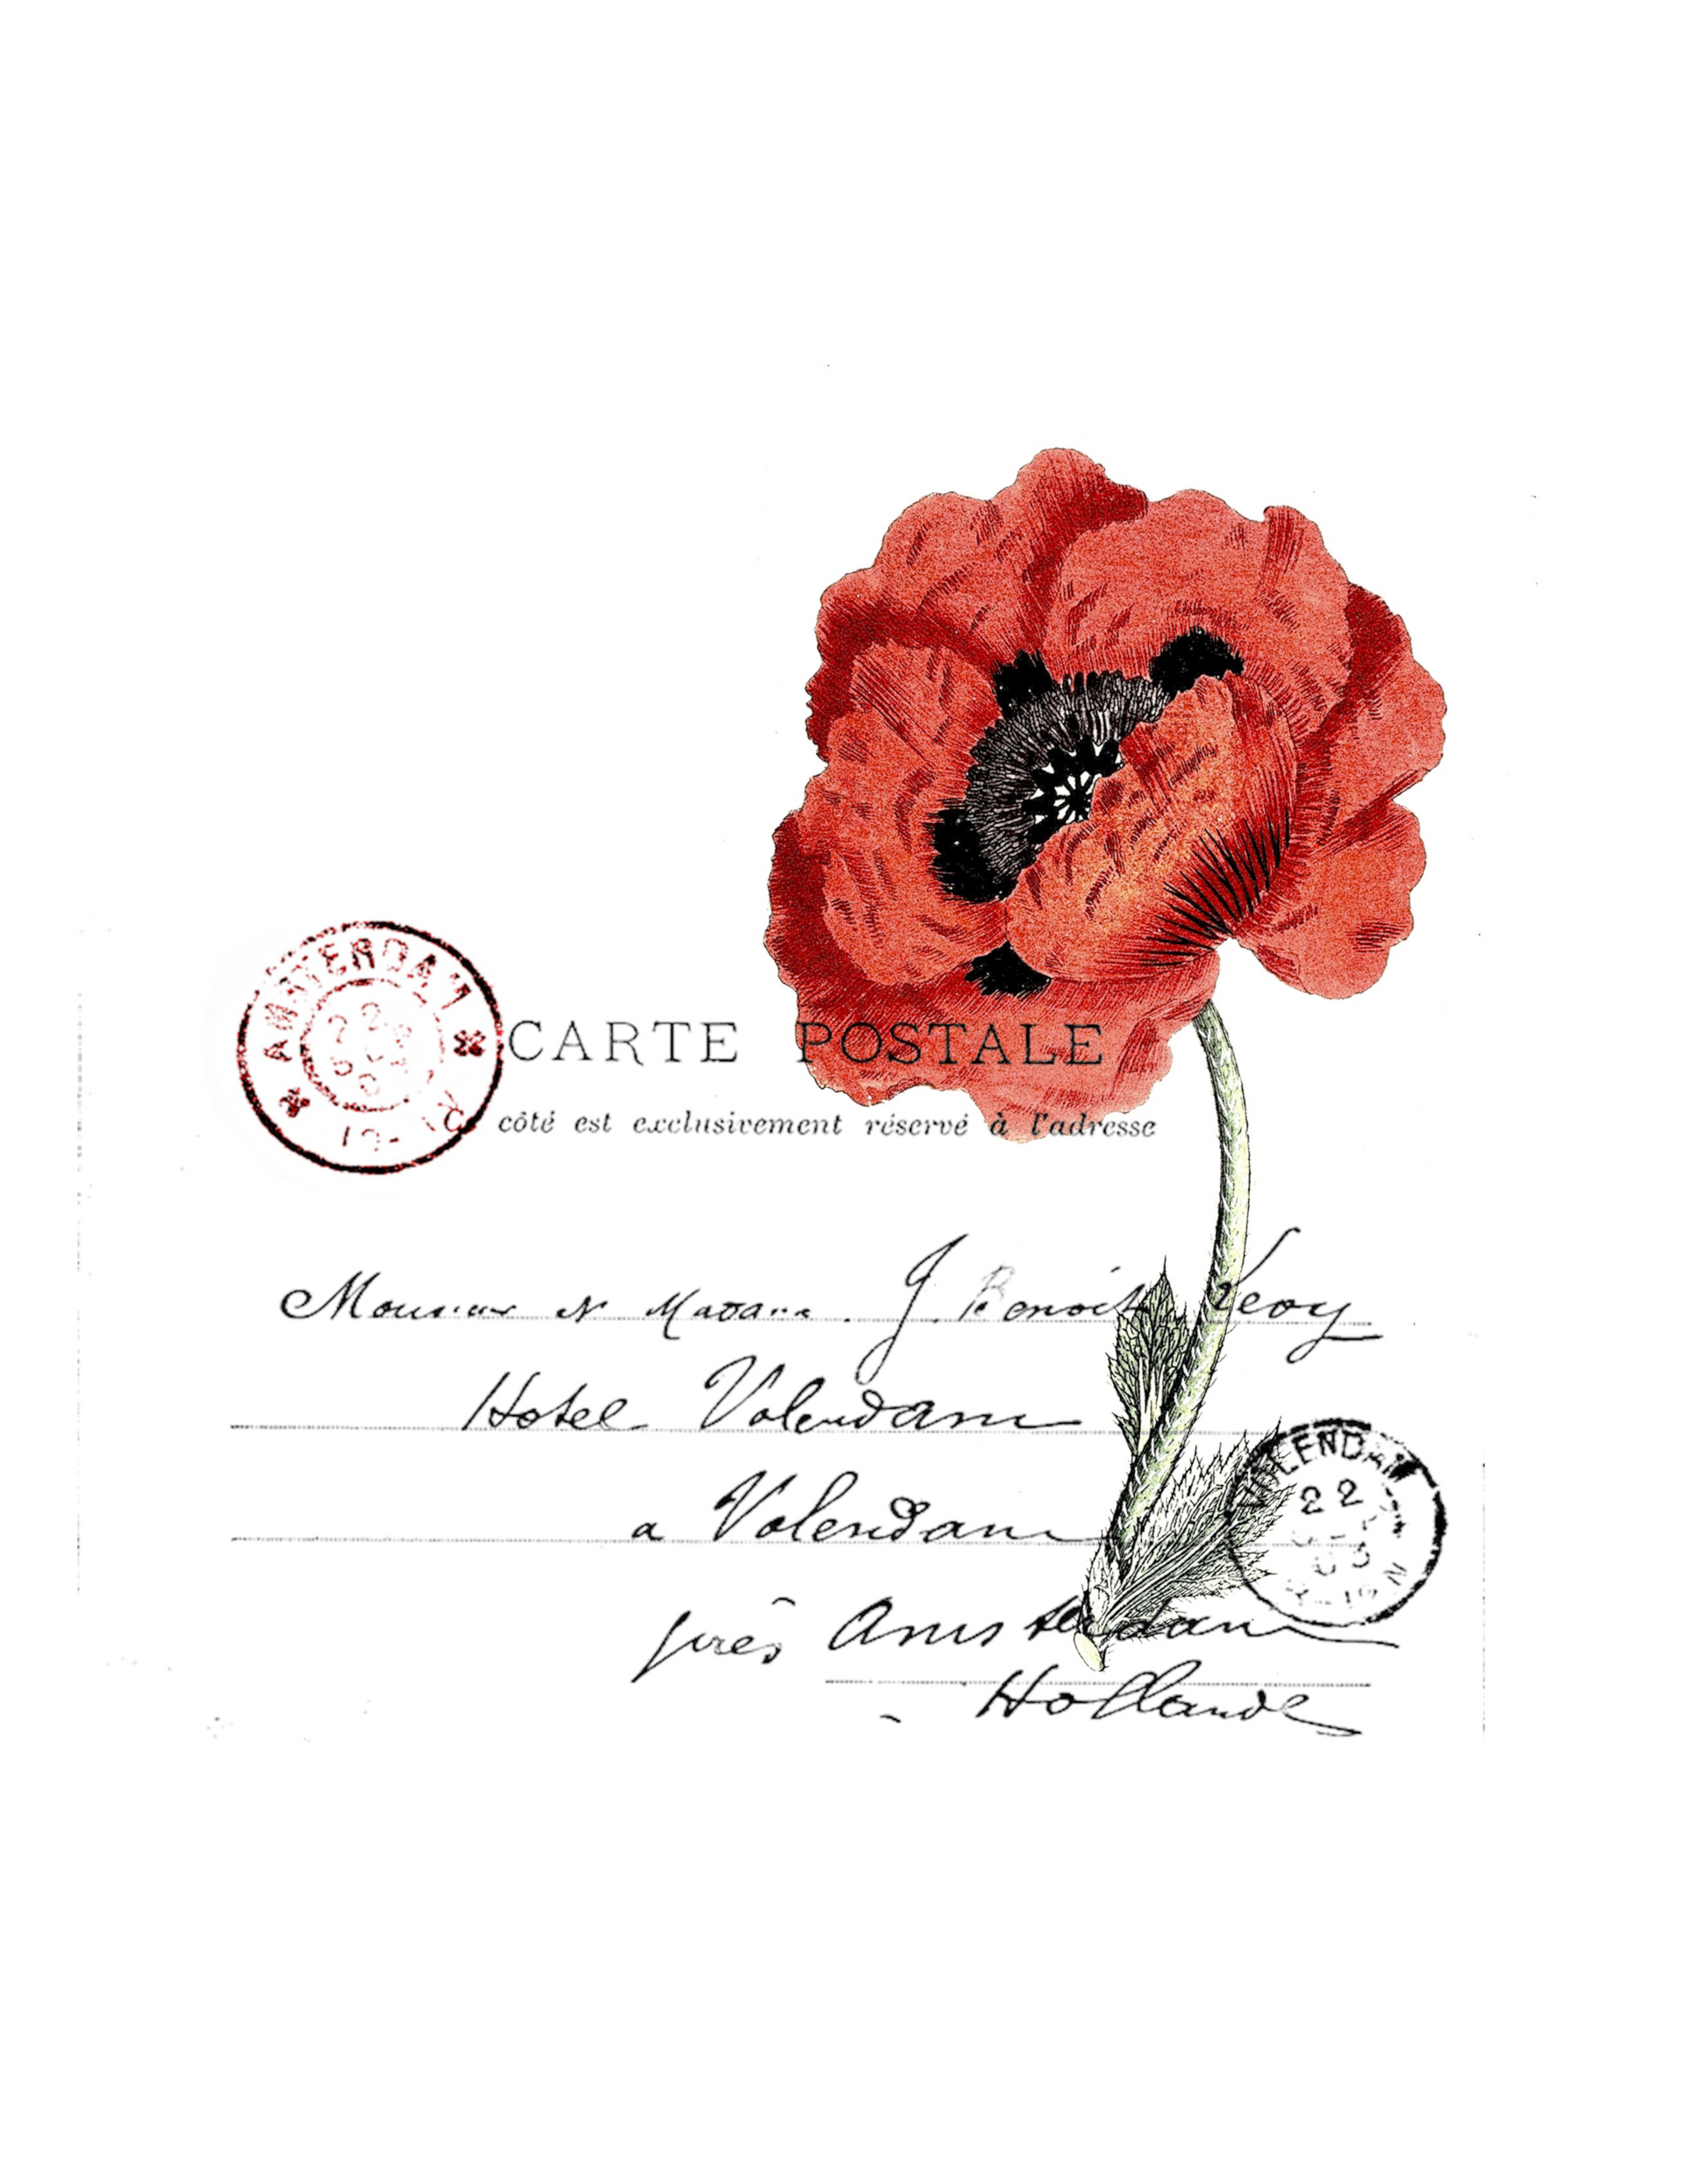 AMSTERDAM
22
CARTE POSTALE
côté est exclusivement réservé à l'adresse
Monsieur et Madame J. Benoit Levy
Hotel Volendam
a Volendam
près Amsterdam
Hollande
VOLENDAM
22